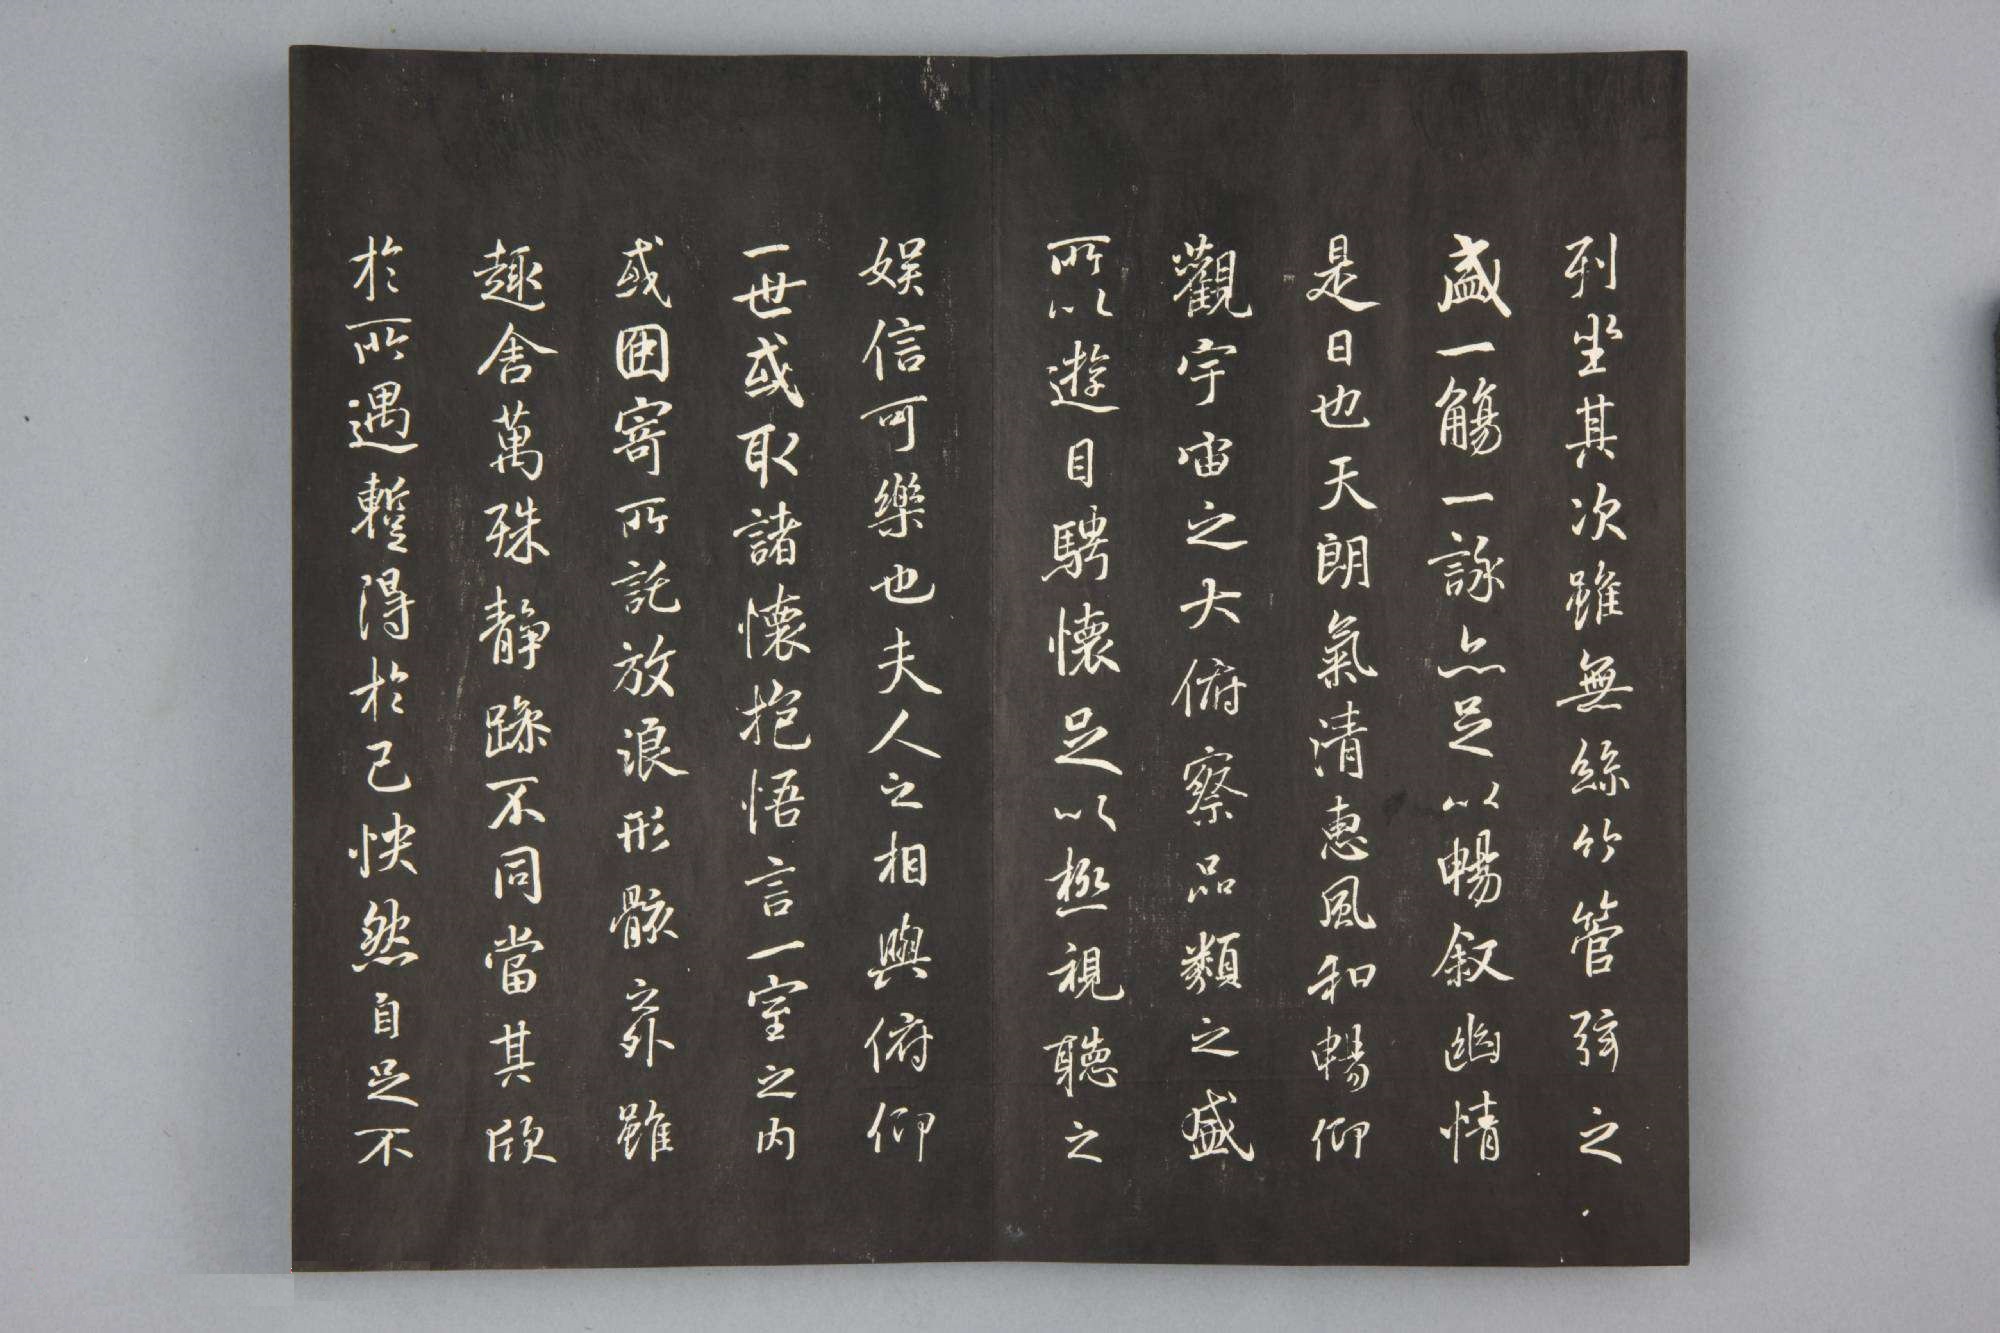 列坐其次雖無絲竹管弦之
盛一觴一詠亦足以暢叙幽情
是日也天朗氣清惠風和暢仰
觀宇宙之大俯察品類之盛
所以遊目騁懷足以極視聽之
娛信可樂也夫人之相與俯仰
一世或取諸懷抱悟言一室之内
或因寄所託放浪形骸之外雖
趣舍萬殊靜躁不同當其欣
於所遇暫得於己快然自足不